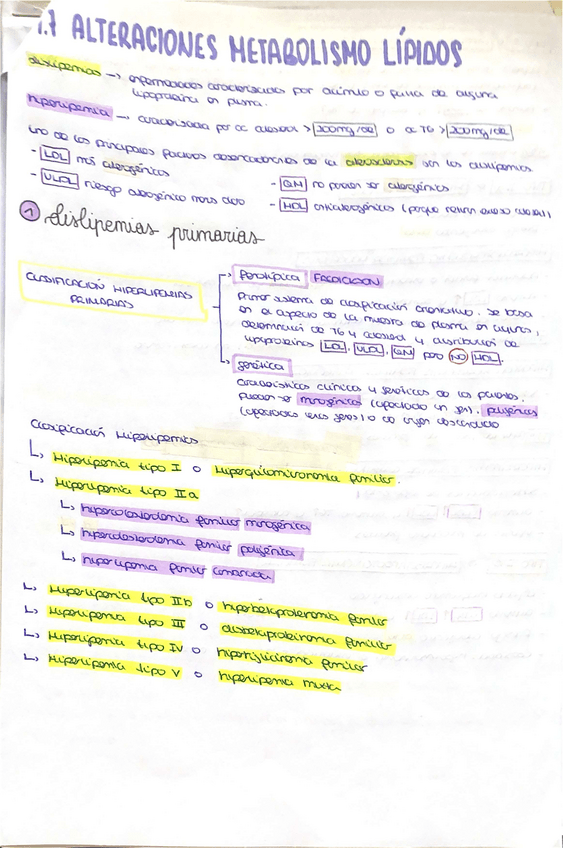 1.7 ALTERACIONES METABOLISMO LÍPIDOS
dislipemias → enfermedades caracterizadas por acúmulo o falta de alguna
lipoproteína en plasma.
hiperlipemia → caracterizada por cc colesterol > 200mg/dL o cc TG > 200mg/dL
Uno de los principales factores desencadenantes de la aterosclerosis son las dislipemias
- LDL más aterogénicos
- VLDL riesgo aterogénico más claro
- QM no parecen ser aterogénicos
- HDL antiaterogénicos (porque retiran exceso colesterol)
① dislipemias primarias
CLASIFICACIÓN HIPERLIPEMIAS
PRIMARIAS
fenotípica FREDRICKSON
Primer sistema de clasificación . Se basa
en el aspecto de la muestra de plasma en ayunas,
determinación de TG y colesterol y distribución de
lipoproteínas LDL, VLDL, QM pero NO HDL.
genética
Características clínicas y genéticas de los pacientes.
Pueden ser monogénicas (afectado un gen), poligénicas
(afectados varios genes) o de origen desconocido
Clasificación Hiperlipemias
↳ Hiperlipemia tipo I o Hiperquilomicronemia familiar.
↳ Hiperlipemia tipo IIa
↳ hipercolesterolemia familiar monogénica
↳ hipercolesterolemia familiar poligénica
↳ hiperlipemia familiar combinada
↳ Hiperlipemia tipo IIb o hiperbetaproteinemia familiar
↳ Hiperlipemia tipo III o disbetaproteinemia familiar
↳ Hiperlipemia tipo IV o hipertrigliceridemia familiar
↳ Hiperlipemia tipo V o hiperlipemia mixta